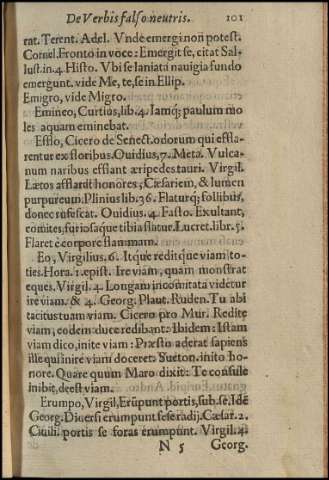 De Verbis falso neutris. 101
rat. Terent. Adel. Vnde emergi non potest.
Cornel. Fronto in voce: Emergit se, citat Sal-
lust. in. 4. Histo. Vbi se laniata nauigia fundo
emergunt. vide Me, te, se in Ellip.
Emigro, vide Migro.
Emineo, Curtius, lib. 4. Iamq; paulum mo
les aquam eminebat.
Efflo, Cicero de Senect. odorum qui effla-
rentur ex floribus. Ouidius, 7. Meta. Vulca-
num naribus efflant æripedes tauri. Virgil.
Lætos afflarat honores; Cæsariem, & lumen
purpureum. Plinius lib. 36. Flaturq; follibus,
donec rufiscat. Ouidius. 4. Fasto. Exultant,
comites, furiosaque tibia flatur. Lucret. libr. 5.
Flaret è corpore flammam.
Eo, Virgilius. 6. Itque reditque viam to-
ties. Hora. 1. epist. Ire viam, quam monstrat
eques. Virgil. 4. Longam incomitata videtur
ire viam. & 4. Georg. Plaut. Ruden. Tu abi
tacitus tuam viam. Cicero pro Mur. Redite
viam, eodem duce redibant: Ibidem: Istam
viam dico, inite viam: Præsto aderat sapiens
ille qui inire viam doceret. Sueton. inito ho-
nore. Quare quum Maro dixit: Te consule
inibit, deest viam.
Erumpo, Virgil, Erũpunt portis, sub. se. Idẽ
Georg. Diuersi erumpunt se se radij. Cæsar. 2.
Ciuili. portis se foras erumpunt. Virgil. 4.
N 5 Georg.